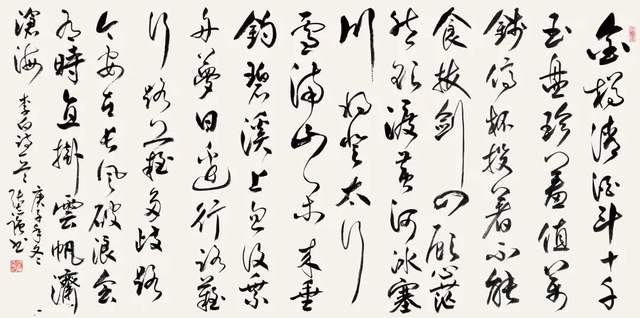 金樽清酒斗十千
玉盘珍羞值万
錢停杯投箸不能
食拔劍四顧心茫
然欲渡黄河冰塞
川将登太行
雪满山闲来垂
釣碧溪上忽復乘
舟夢日边行路難
行路難多歧路
今安在长風破浪会
有時直掛雲帆濟
滄海 李白诗一首
庚子年冬
书